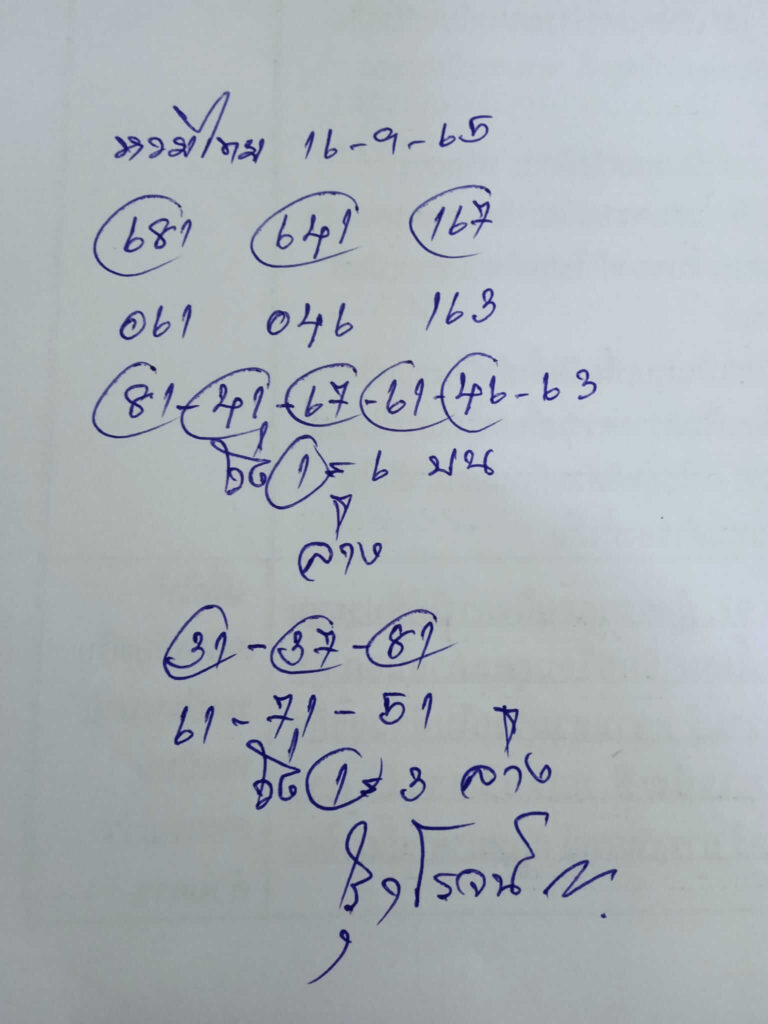 หวยไทย 16-9-65
681 641 167
061 046 163
81-41-67-61-46-63
วิ่ง 1 = 6 บน
ล่าง
31-37-81
61-71-51
วิ่ง 1 = 3 ล่าง